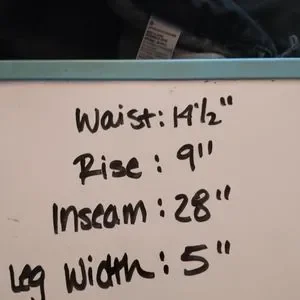 Waist: 14½"
Rise: 9"
Inseam: 28"
Leg Width: 5"